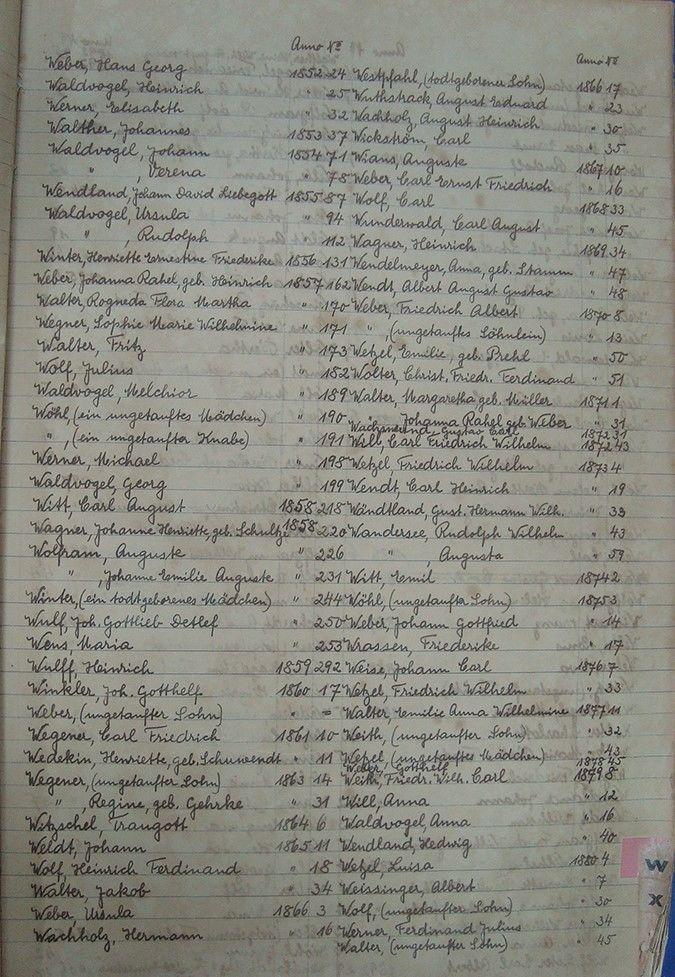 Anno No
Weber, Hans Georg 1852 24
Waldvogel, Heinrich " 25
Werner, Elisabeth " 32
Walther, Johannes 1853 37
Waldvogel, Johann 1854 71
" , Verena " 78
Wendland, Johann David Liebegott 1855 87
Waldvogel, Ursula " 94
" , Rudolph " 112
Winter, Henriette Ernestine Friederike 1856 131
Weber, Johanna Rahel, geb. Heinrich 1857 162
Walter, Rogneda Flora Martha " 170
Wegner, Sophie Marie Wilhelmine " 171
Walter, Fritz " 173
Wolf, Julius " 182
Waldvogel, Melchior " 189
Wöhl (ein ungetauftes Mädchen) " 190
" , (ein ungetaufter Knabe) " 191
Werner, Michael " 198
Waldvogel, Georg " 199
Witt, Carl August 1858 218
Wagner, Johanne Henriette, geb. Schultze 1858 220
Wolfram, Auguste " 226
" , Johanne Emilie Auguste " 231
Winter, (ein todtgeborenes Mädchen) " 244
Wulf, Joh. Gottlieb Detlef " 250
Wens, Maria " 253
Wulff, Heinrich 1859 292
Winkler, Joh. Gotthelf 1860 17
Weber, (ungetaufter Sohn) " =
Wegener, Carl Friedrich 1861 10
Wedekin, Henriette, geb. Schuwendt " 11
Wegener, (ungetaufter Sohn) 1863 14
" , Regine, geb. Gehrke " 31
Witzschel, Traugott 1864 6
Weldt, Johann 1865 11
Wolf, Heinrich Ferdinand " 18
Walter, Jakob " 34
Weber, Ursula 1866 3
Wachholz, Hermann " 16
Anno No
Westpfahl, (todtgeborener Sohn) 1866 17
Wuthstrack, August Eduard " 23
Wachholz, August Heinrich " 30
Wickström, Carl " 35
Wians, Auguste 1867 10
Weber, Carl Ernst Friedrich " 16
Wolf, Carl 1868 33
Wunderwald, Carl August " 45
Wagner, Heinrich 1869 34
Wendelmeyer, Anna, geb. Stamm " 47
Wendt, Albert August Gustav " 48
Weber, Friedrich Albert 1870 8
" , (ungetauftes Söhnlein) " 13
Wetzel, Emilie, geb. Prehl " 50
Wolter, Christ. Friedr. Ferdinand " 51
Walter, Margaretha geb. Müller 1871 1
" , Johanna Rahel geb. Weber " 31
Wachsmund, Gustav Carl 1872 31
Will, Carl Friedrich Wilhelm 1872 43
Wetzel Friedrich Wilhelm 1873 4
Wendt, Carl Heinrich " 19
Wendtland, Gust. Hermann Wilh. " 33
Wandersee, Rudolph Wilhelm " 43
" , Augusta " 59
Witt, Emil 1874 2
Wöhl, (ungetaufter Sohn) 1875 3
Weber, Johann Gottfried " 14
Wrassen, Friederike " 17
Weise, Johann Carl 1876 7
Wetzel, Friedrich Wilhelm " 33
Walter, Emilie Anna Wilhelmine 1877 11
Weith, (ungetaufter Sohn) " 32
Wetzel, (ungetauftes Mädchen) " 43
Weber, Gotthelf 1878 45
Weith, Friedr. Wilh. Carl 1879 8
Will, Anna " 12
Waldvogel, Anna " 16
Wendland, Hedwig " 40
Wetzel, Luisa 1880 4
Weissinger, Albert " 7
Wolf, (ungetaufter Sohn) " 30
Werner, Ferdinand Julius " 34
Walter, (ungetaufter Sohn) " 45
W
X